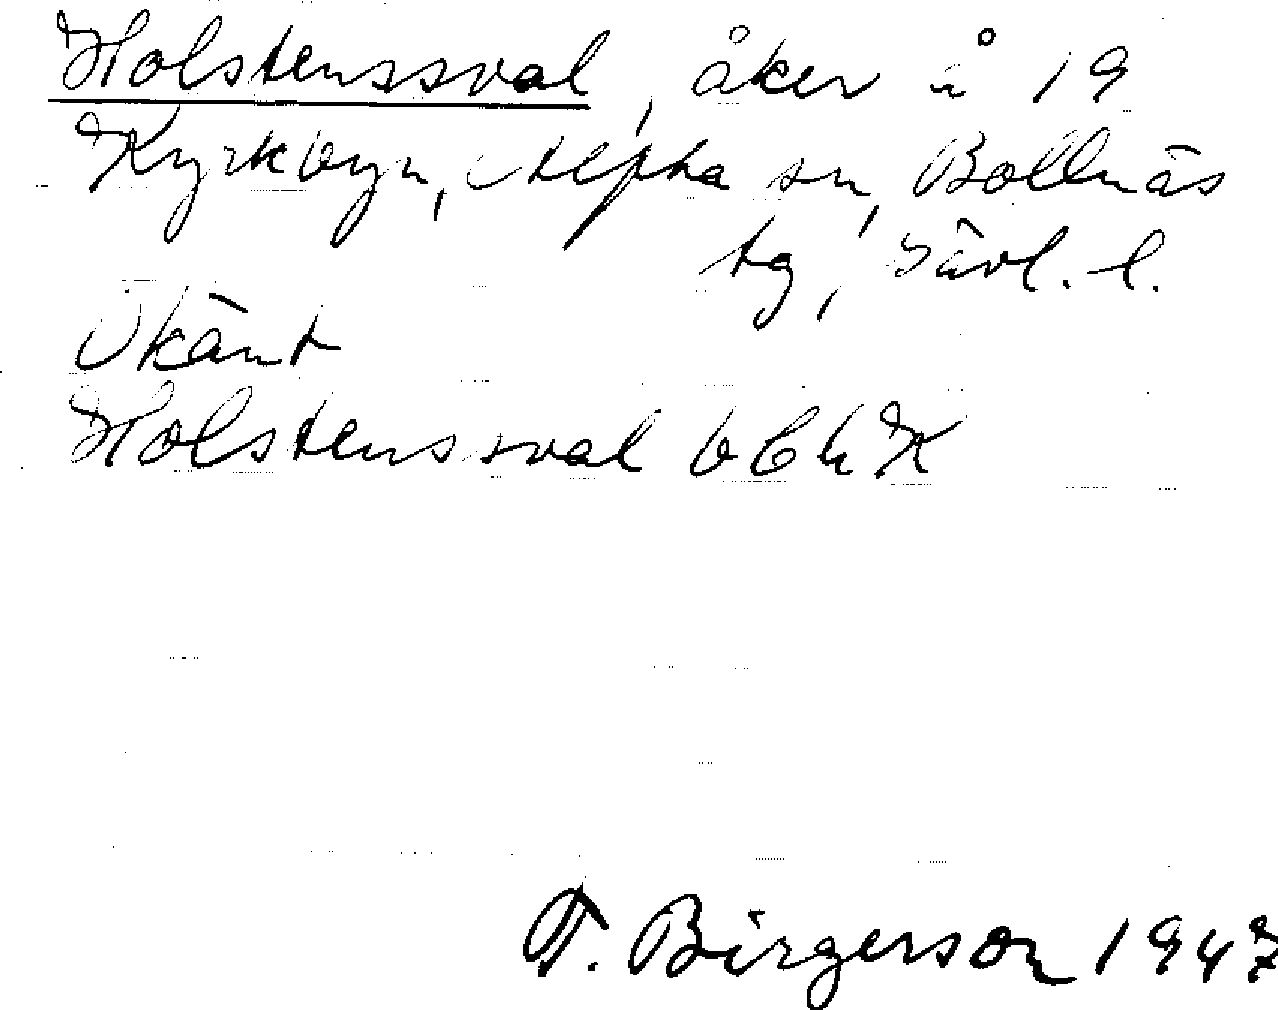 Holstenssval, åker å 19
Kyrkbyn, Alfta sn, Bollnäs
tg, Gävl. l.
Okänt
Holstenssval
T. Birgerson 1947